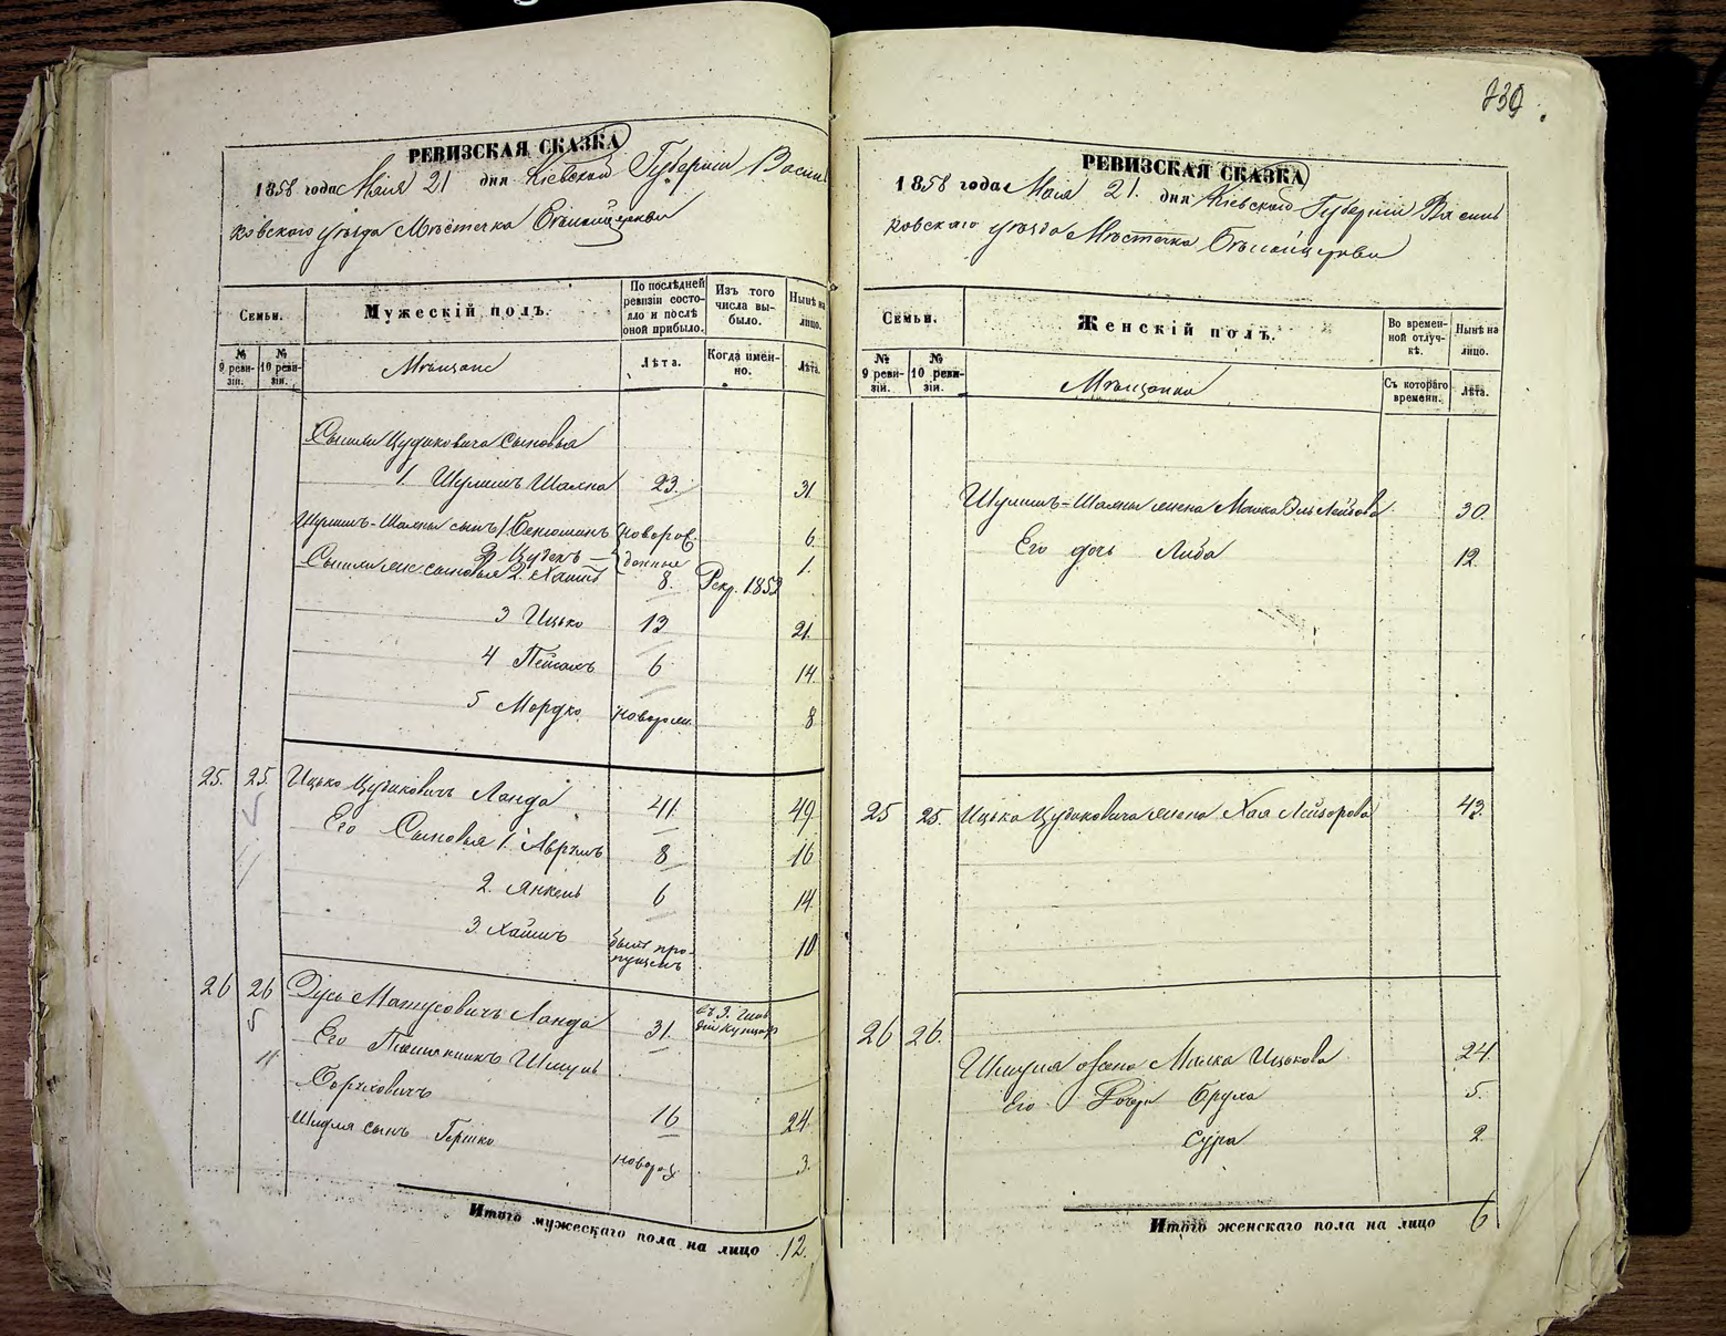 739
РЕВИЗСКАЯ СКАЗКА
1858 года Мая 21 дня Кіевской Губерніи Василь
ковскаго уѣзда Мѣстечка Бѣлойцеркви
Семьи.
Мужескій полъ.
По послѣдней ревизіи состояло и послѣ оной прибыло.
Изъ того числа выбыло.
Нынѣ на лицо.
№ 9 ревизіи.
№ 10 ревизіи.
Мѣщане
Лѣта.
Когда именно.
Лѣта.
Цудиковича сыновья
1. Шулимъ Шахна 23. 31
Шулимъ-Шахны сынъ 1 Бенюминъ новорож. 6.
2. Цудекъ денные 1.
сыновья 2. Хаимъ 8. Рекр. 1852
3 Ицько 13 21.
4 Пейсахъ 6 14.
5 Мордко 8
25. 25 Ицько Цудиковичъ Ланда 41. 49
Его Сыновья 1. Аврумъ 8 16
2. Янкель 6 14.
3. Хаимъ былъ пропущенъ 10
26 26 Дусь Матусовичъ Ланда 31.
Его Племянникъ Шмуль
Боруховичъ 16 24
Шмуля сынъ Гершко новорож. 3.
Итого мужескаго пола на лицо 12.
РЕВИЗСКАЯ СКАЗКА
1858 года Мая 21. дня Кіевской Губерніи Василь
ковскаго уѣзда Мѣстечка Бѣлойцеркви
Семьи.
Женскій полъ.
Во временной отлучкѣ.
Нынѣ на лицо.
№ 9 ревизіи.
№ 10 ревизіи.
Мѣщанки
Съ котораго времени.
Лѣта.
Шулимъ-Шахны жена 30.
Его дочь Либа 12.
25 25. Ицька Цудиковича жена Хая Лейзорова 43.
26 26.
Шмуля жена Малка Ицькова 24.
Его Дочери Бруха 5.
Сура 2.
Итого женскаго пола на лицо 6